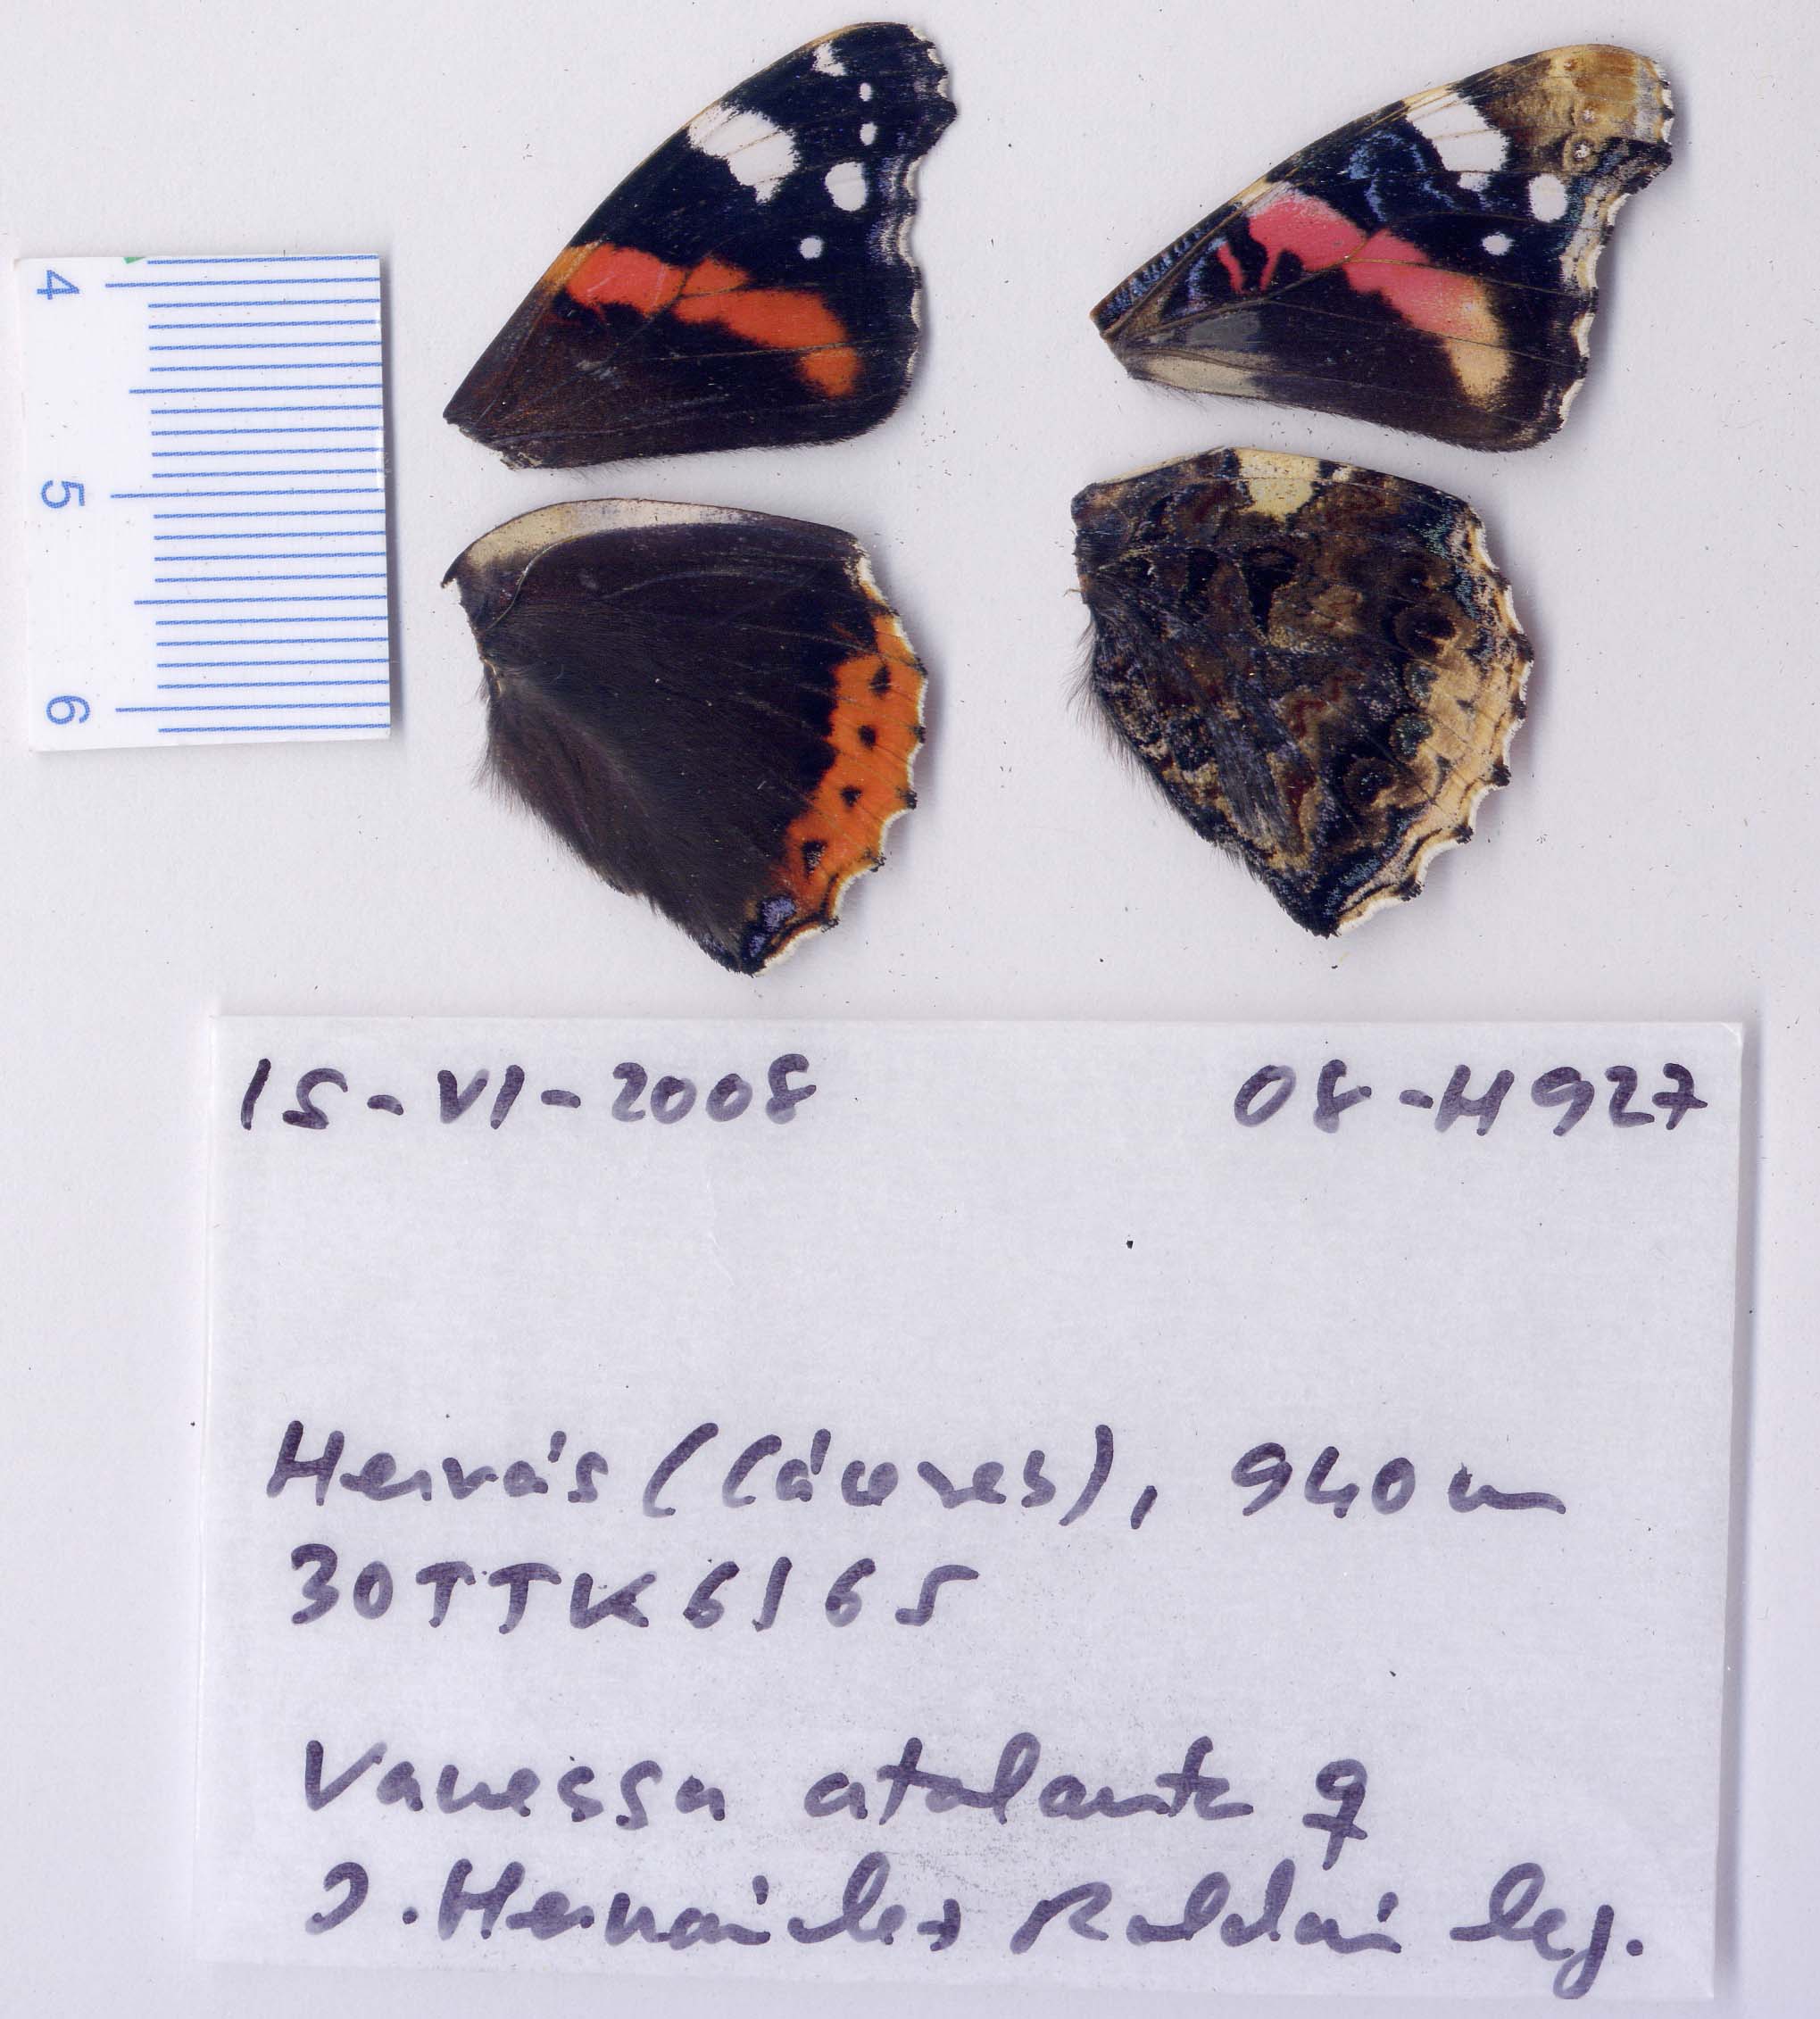 4
5
6
15-VI-2008 08-H927
Hervás (Cáceres), 940 m
30TTK6165
Vanessa atalanta ♀
J. Hernández Roldán leg.